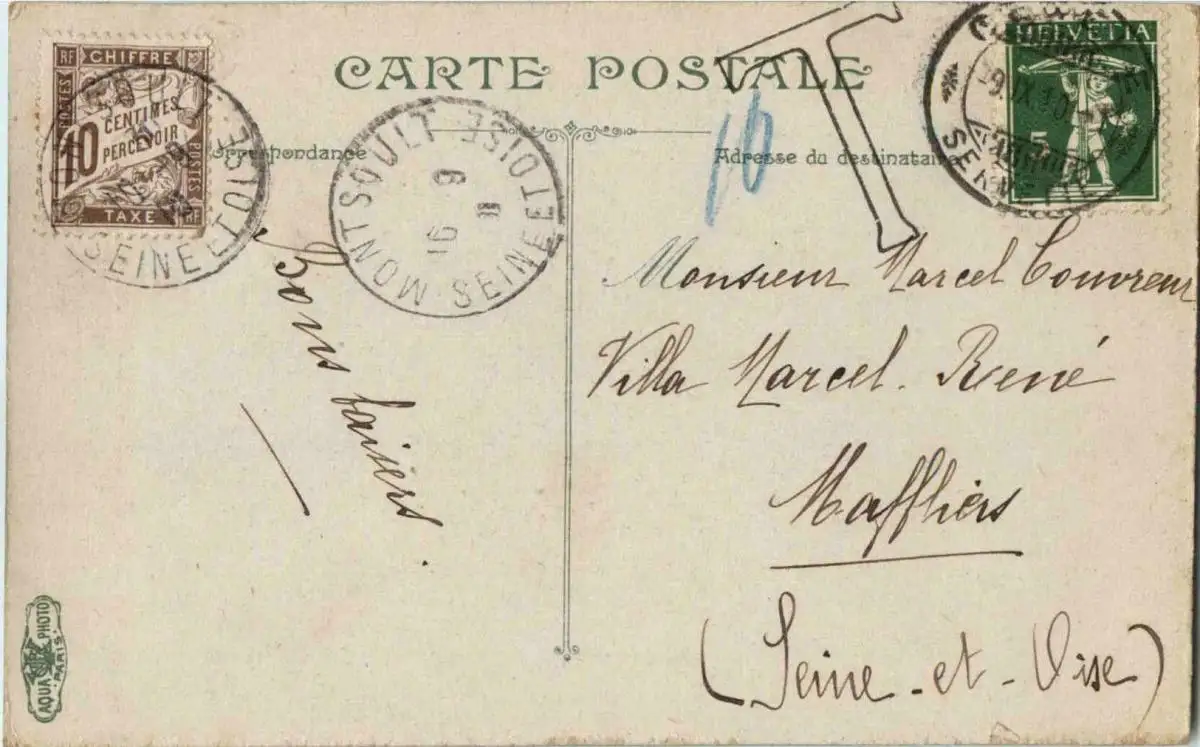 CARTE POSTALE
Correspondance
Adresse du destinataire
RF CHIFFRE
POSTES
10 CENTIMES
PERCEVOIR
POSTES
TAXE RF
SEINE ET OISE
MONTSOULT
16 9
11
SEINE ET OISE
T
10
HELVETIA
5
Bons baisers.
Monsieur Marcel Couvreur
Villa Marcel-René
Maffliers
(Seine-et-Oise)
AQUA PHOTO
PARIS